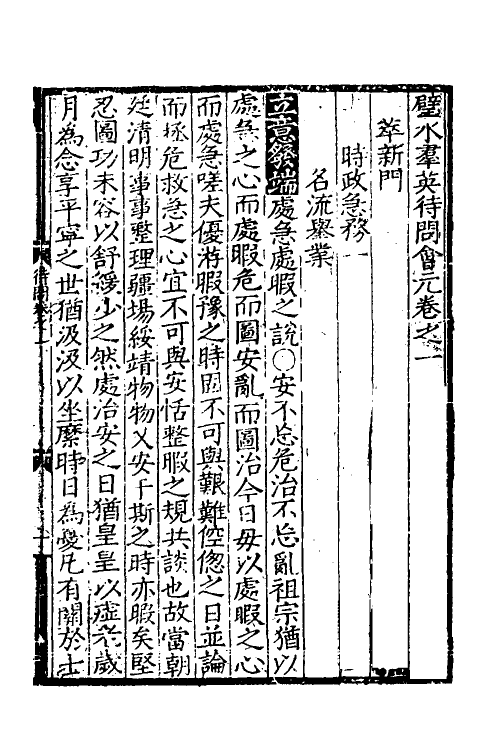 璧水羣英待問會元卷之一
萃新門
時政急務一
名流舉業
立意發端處急處暇之說○安不忘危治不忘亂祖宗猶以
處急之心而處暇危而圖安亂而圖治今日毋以處暇之心
而處急嗟夫優游暇豫之時固不可與艱難倥偬之日並論
而拯危救急之心宜不可與安恬整暇之規共談也故當朝
廷清明事事整理疆場綏靖物物乂安于斯之時亦暇矣堅
忍圖功未容以舒緩少之然處治安之日猶皇皇以虛老歲
月為念享平寧之世猶汲汲以坐縻時日為憂凡有關於士
待問卷之一